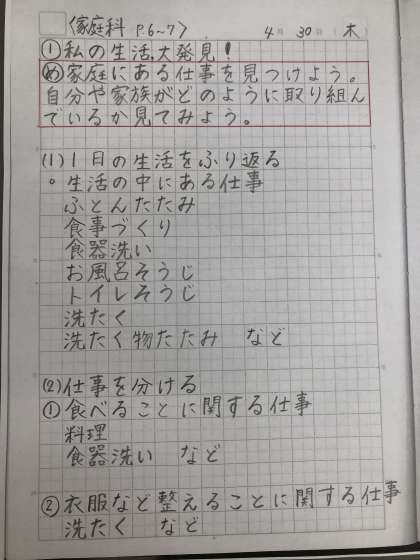 〈家庭科 P.6~7〉 4月30日(木)
①私の生活、大発見!
め家庭にある仕事を見つけよう。
自分や家族がどのように取り組ん
でいるか見てみよう。
(1)1日の生活をふり返る
○生活の中にある仕事
ふとんたたみ
食事づくり
食器洗い
お風呂そうじ
トイレそうじ
洗たく
洗たく物たたみ など
(2)仕事を分ける
①食べることに関する仕事
料理
食器洗い など
②衣服など整えることに関する仕事
洗たく など